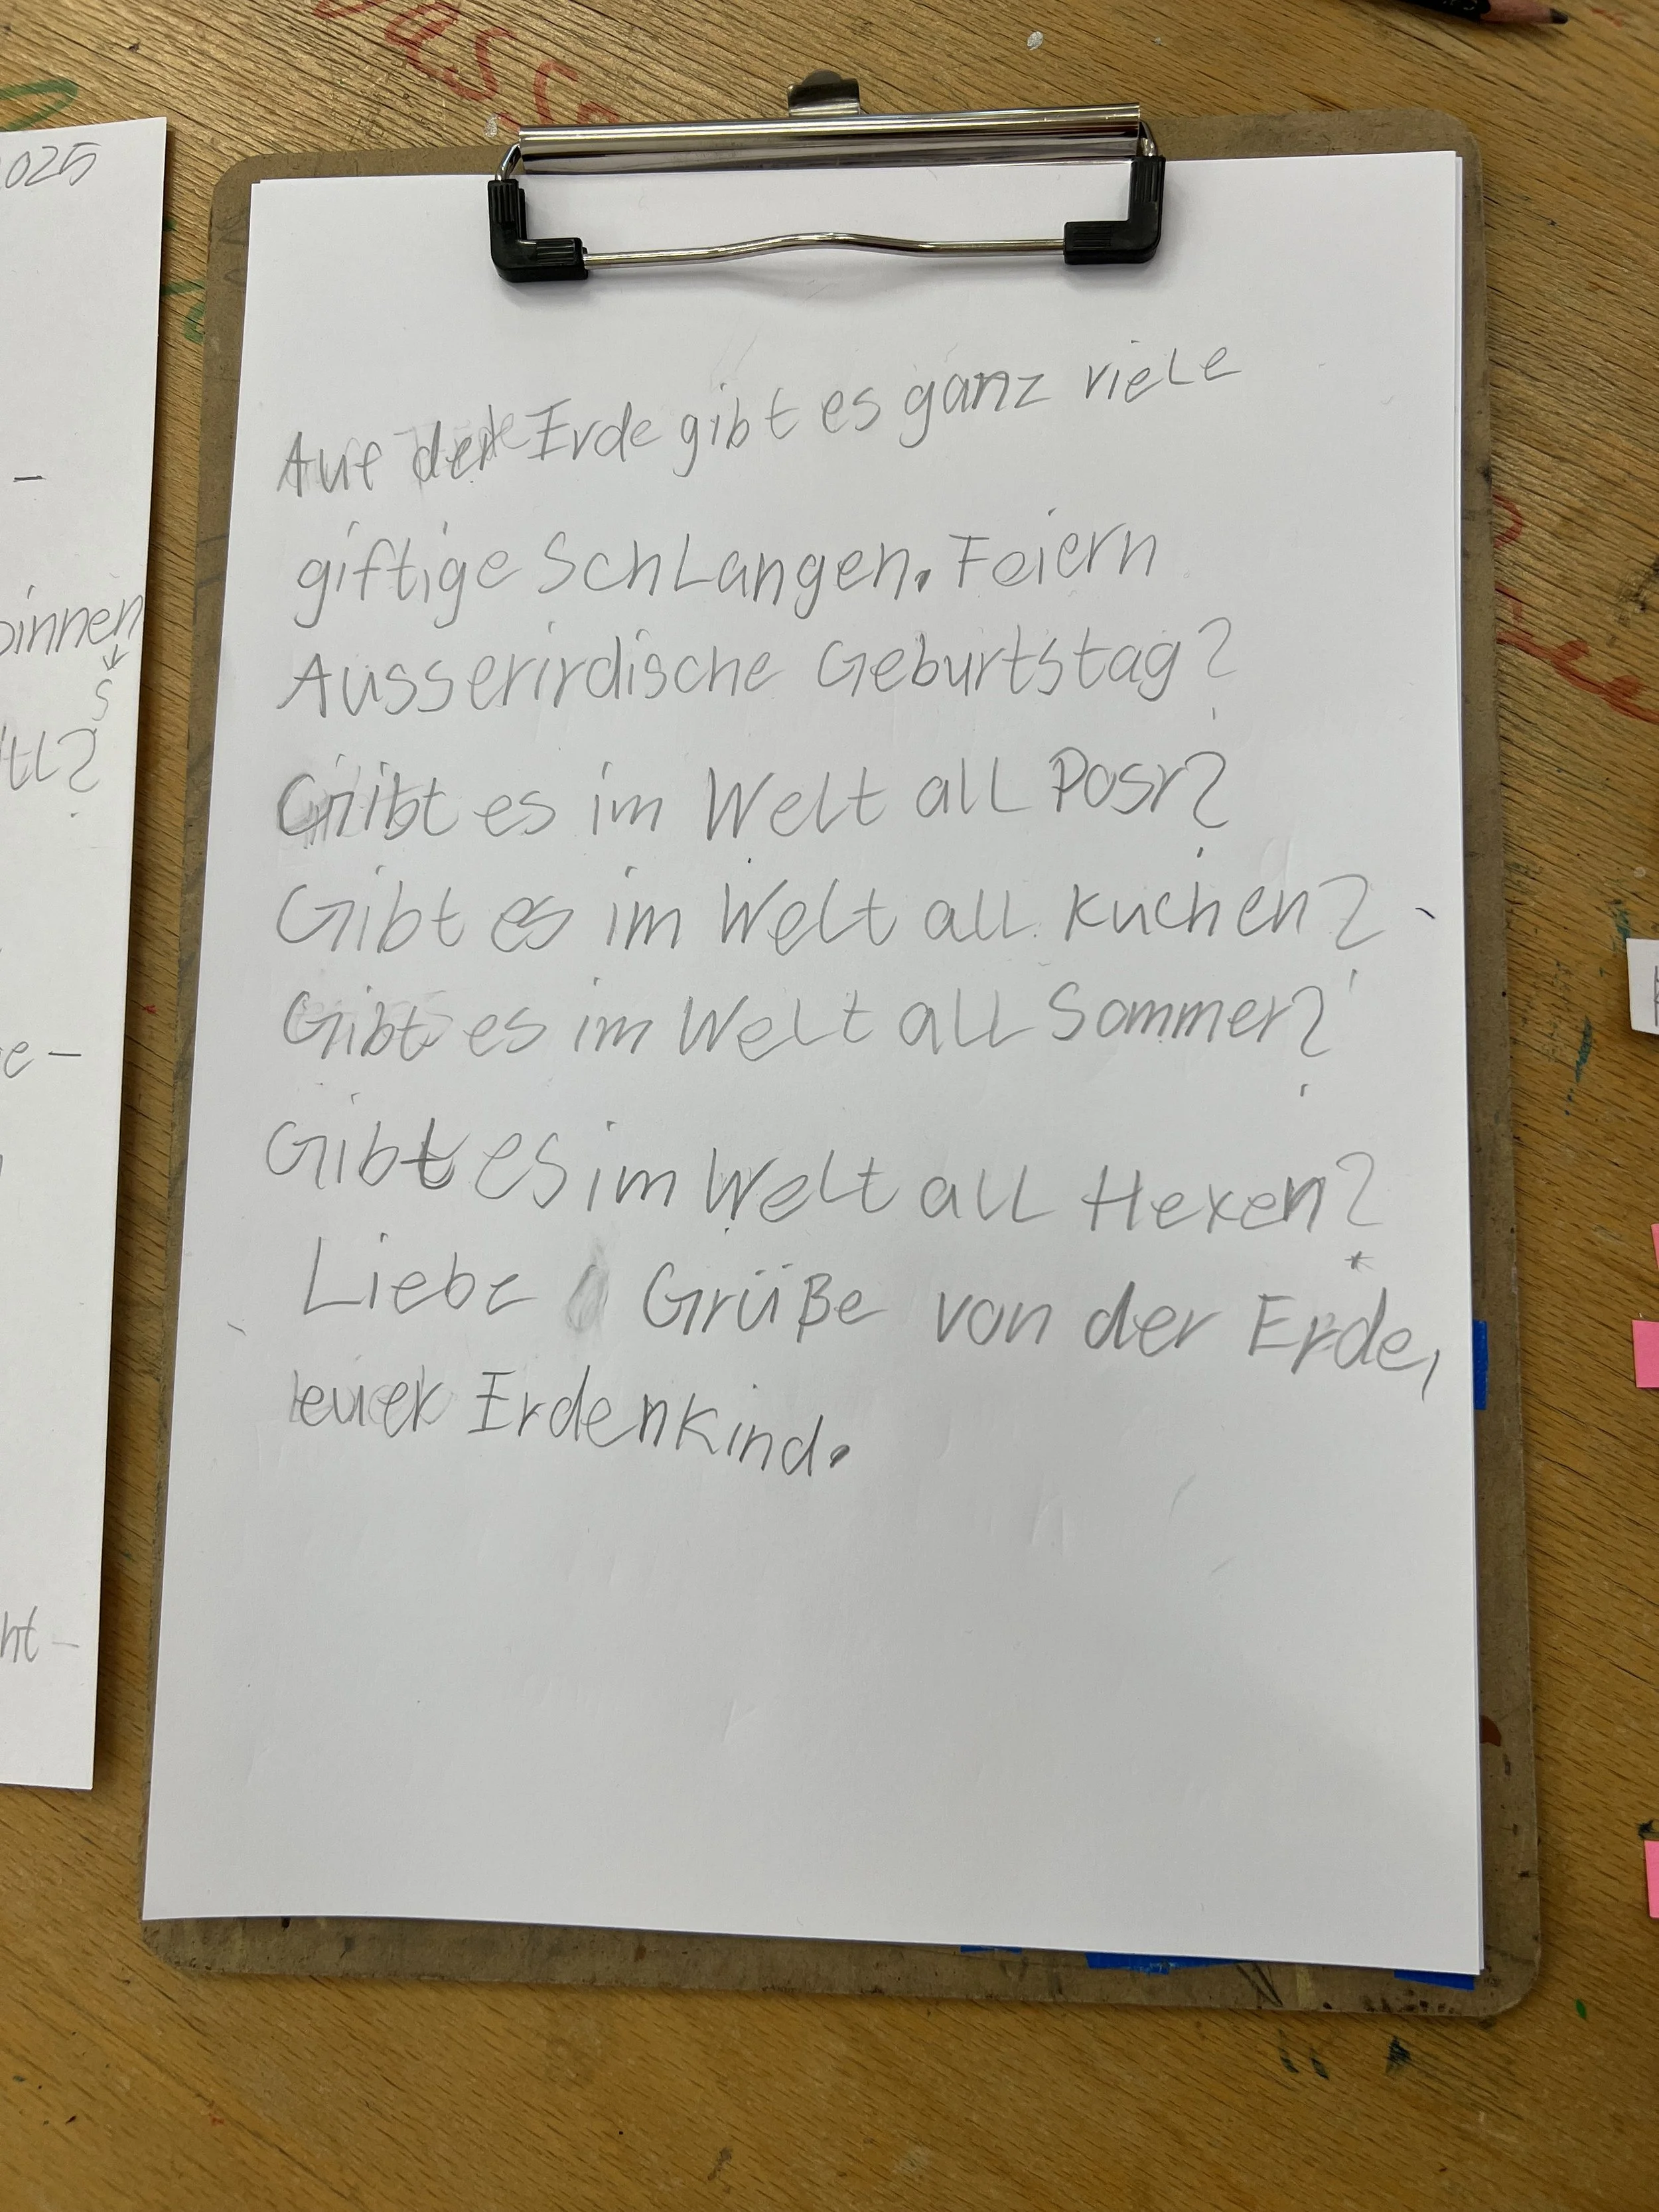 2025
Auf der Erde gibt es ganz viele
giftige Schlangen. Feiern
Ausserirdische Geburtstag?
Gibt es im Welt all Posr?
Gibt es im Welt all kuchen?
Gibt es im Welt all Sommer?
Gibt es im Welt all Hexen?
Liebe Grüße von der Erde,
euer Erdenkind.